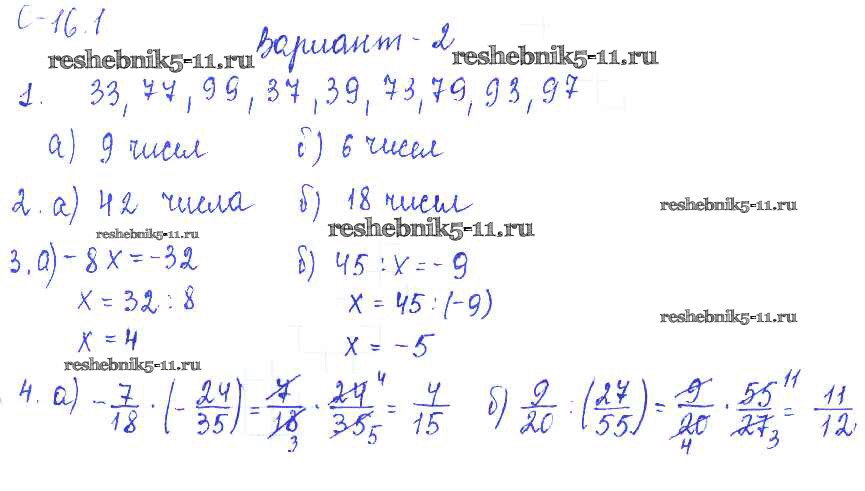 С-16.1
Вариант - 2
reshebnik5-11.ru reshebnik5-11.ru
1. 33, 77, 99, 37, 39, 73, 79, 93, 97
а) 9 чисел б) 6 чисел
2. а) 42 числа б) 18 чисел
reshebnik5-11.ru
reshebnik5-11.ru reshebnik5-11.ru
3. а) -8x = -32 б) 45 : x = -9
x = 32 : 8 x = 45 : (-9)
reshebnik5-11.ru
x = 4 x = -5
reshebnik5-11.ru
4. а) - 7/18 · (- 24/35) = 7/18 3 · 24 4/35 5 = 4/15 б) 9/20 : (27/55) = 9/20 4 · 55 11/27 3 = 11/12